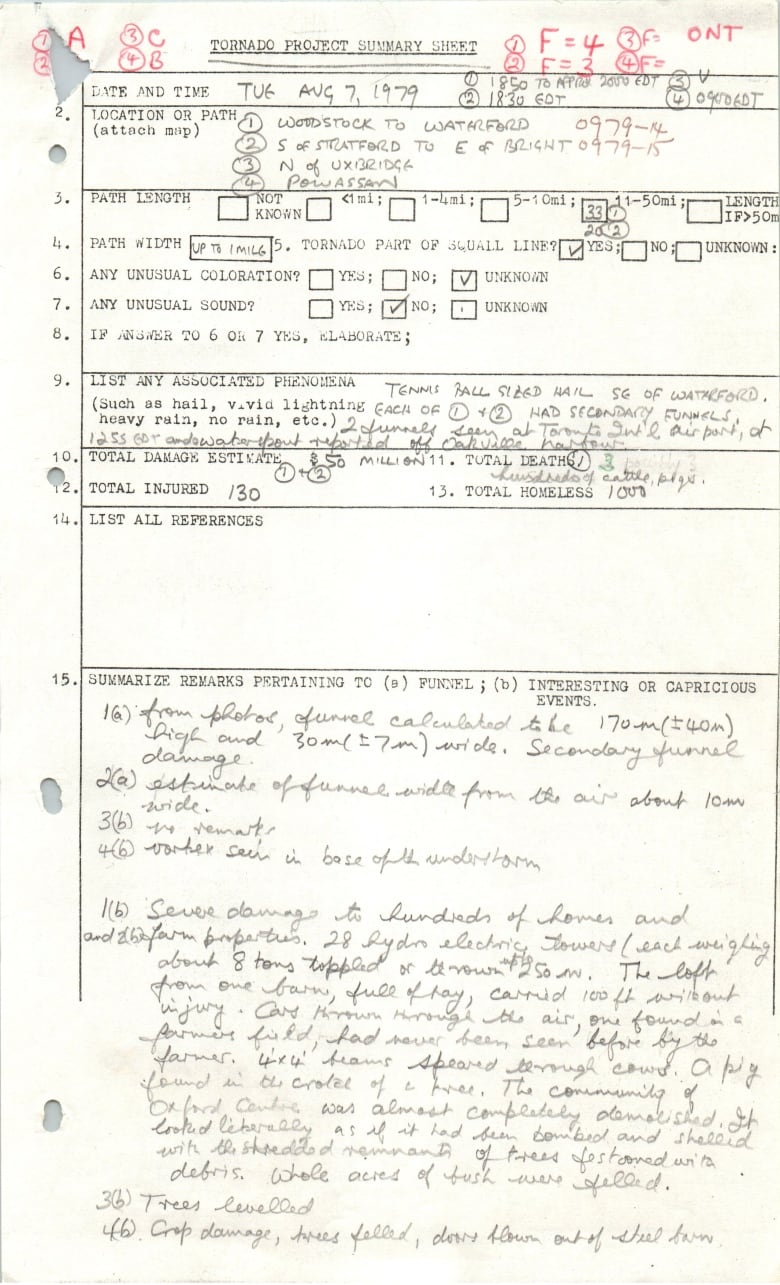 ① A ③ C TORNADO PROJECT SUMMARY SHEET ① F=4 ③ F= ONT
② ④ B ② F=3 ④ F=
DATE AND TIME TUE AUG 7, 1979 ① 1850 TO APPROX 2000 EDT ③ U
② 1830 EDT ④ 0900 EDT
2. LOCATION OR PATH ① WOODSTOCK TO WATERFORD 0979-14
(attach map) ② S OF STRATFORD TO E of BRIGHT 0979-15
③ N of UXBRIDGE
④ POWASSAN
3. PATH LENGTH NOT KNOWN <1mi; 1-4mi; 5-10mi; 33 ① 11-50mi; LENGTH IF>50m
20 ②
4. PATH WIDTH UP TO 1 MILE 5. TORNADO PART OF SQUALL LINE? ✓ YES; NO; UNKNOWN:
6. ANY UNUSUAL COLORATION? YES; NO; ✓ UNKNOWN
7. ANY UNUSUAL SOUND? YES; ✓ NO; UNKNOWN
8. IF ANSWER TO 6 OR 7 YES, ELABORATE;
9. LIST ANY ASSOCIATED PHENOMENA TENNIS BALL SIZED HAIL SE OF WATERFORD.
(Such as hail, vivid lightning EACH OF ① + ② HAD SECONDARY FUNNELS,
heavy rain, no rain, etc.) 2 funnels seen at Toronto Int'l airport, at
1255 EDT and waterspout reported off Oakville harbour
10. TOTAL DAMAGE ESTIMATE $50 MILLION 11. TOTAL DEATHS ① 3
① + ② hundreds of cattle, pigs.
12. TOTAL INJURED 130 13. TOTAL HOMELESS 1000
14. LIST ALL REFERENCES
15. SUMMARIZE REMARKS PERTAINING TO (a) FUNNEL; (b) INTERESTING OR CAPRICIOUS
EVENTS.
1(a) from photos, funnel calculated to be 170m (±40m)
high and 30m (±7m) wide. Secondary funnel
damage.
2(a) estimate of funnel width from the air about 10m
wide.
3(b) no remarks
4(b) vortex seen in base of th understorm
1(b) Severe damage to hundreds of homes and
and 2(b) farm properties. 28 hydro electric towers (each weighing
about 8 tons toppled or thrown up to 250 m. The loft
from one barn, full of hay, carried 100 ft without
injury. Cars thrown through the air, one found in a
farmers field, had never been seen before by the
farmer. 4x4 beams speared through cows. A pig
found in the crotch of a tree. The community of
Oxford Centre was almost completely demolished. It
looked literally as if it had been bombed and shelled
with the shredded remnants of trees festooned with
debris. Whole acres of bush were felled.
3(b) Trees levelled
4(b). Crop damage, trees felled, doors blown out of steel barn.